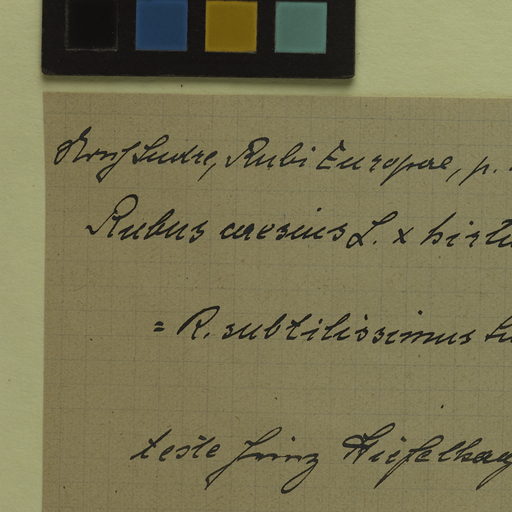 Sudre, Rubi Europae, p.
Rubus caesius L. x hirtu
= R. subtilissimus Su
teste Heinz Kiefelhag